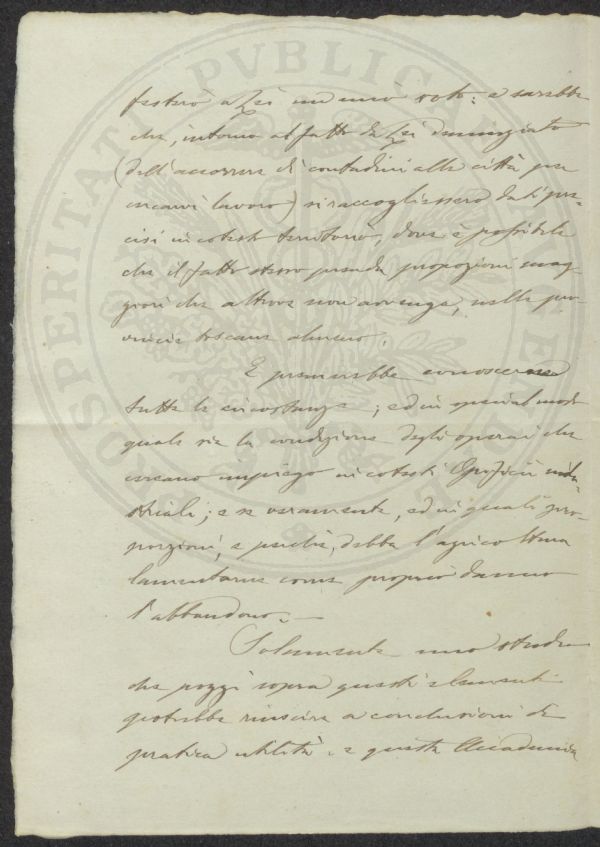 festerò a Lei un mio voto: e sarebbe
che, intorno al fatto da Lei denunziato
(dell'accorrere di contadini alle città per
cercarvi lavoro) si raccogliessero dati pre-
cisi in cotesto territorio, dove è possibile
che il fatto stesso prenda proporzioni mag-
giori che altrove non avvenga, nelle pro-
vincie toscane almeno.
E premerebbe conoscerne
tutte le circostanze; ed in special modo
quale sia la condizione degli operai che
cercano impiego in cotesti Opificii indu-
striali; e se veramente, ed in quali pro-
porzioni, e perchè, debba l'agricoltura
lamentarne come proprio danno
l'abbandono.—
Solamente uno studio
che poggi sopra questi elementi
potrebbe riuscire a conclusioni di
pratica utilità. e questa Accademia
PROSPERITATI PVBLICAE AVGENDAE